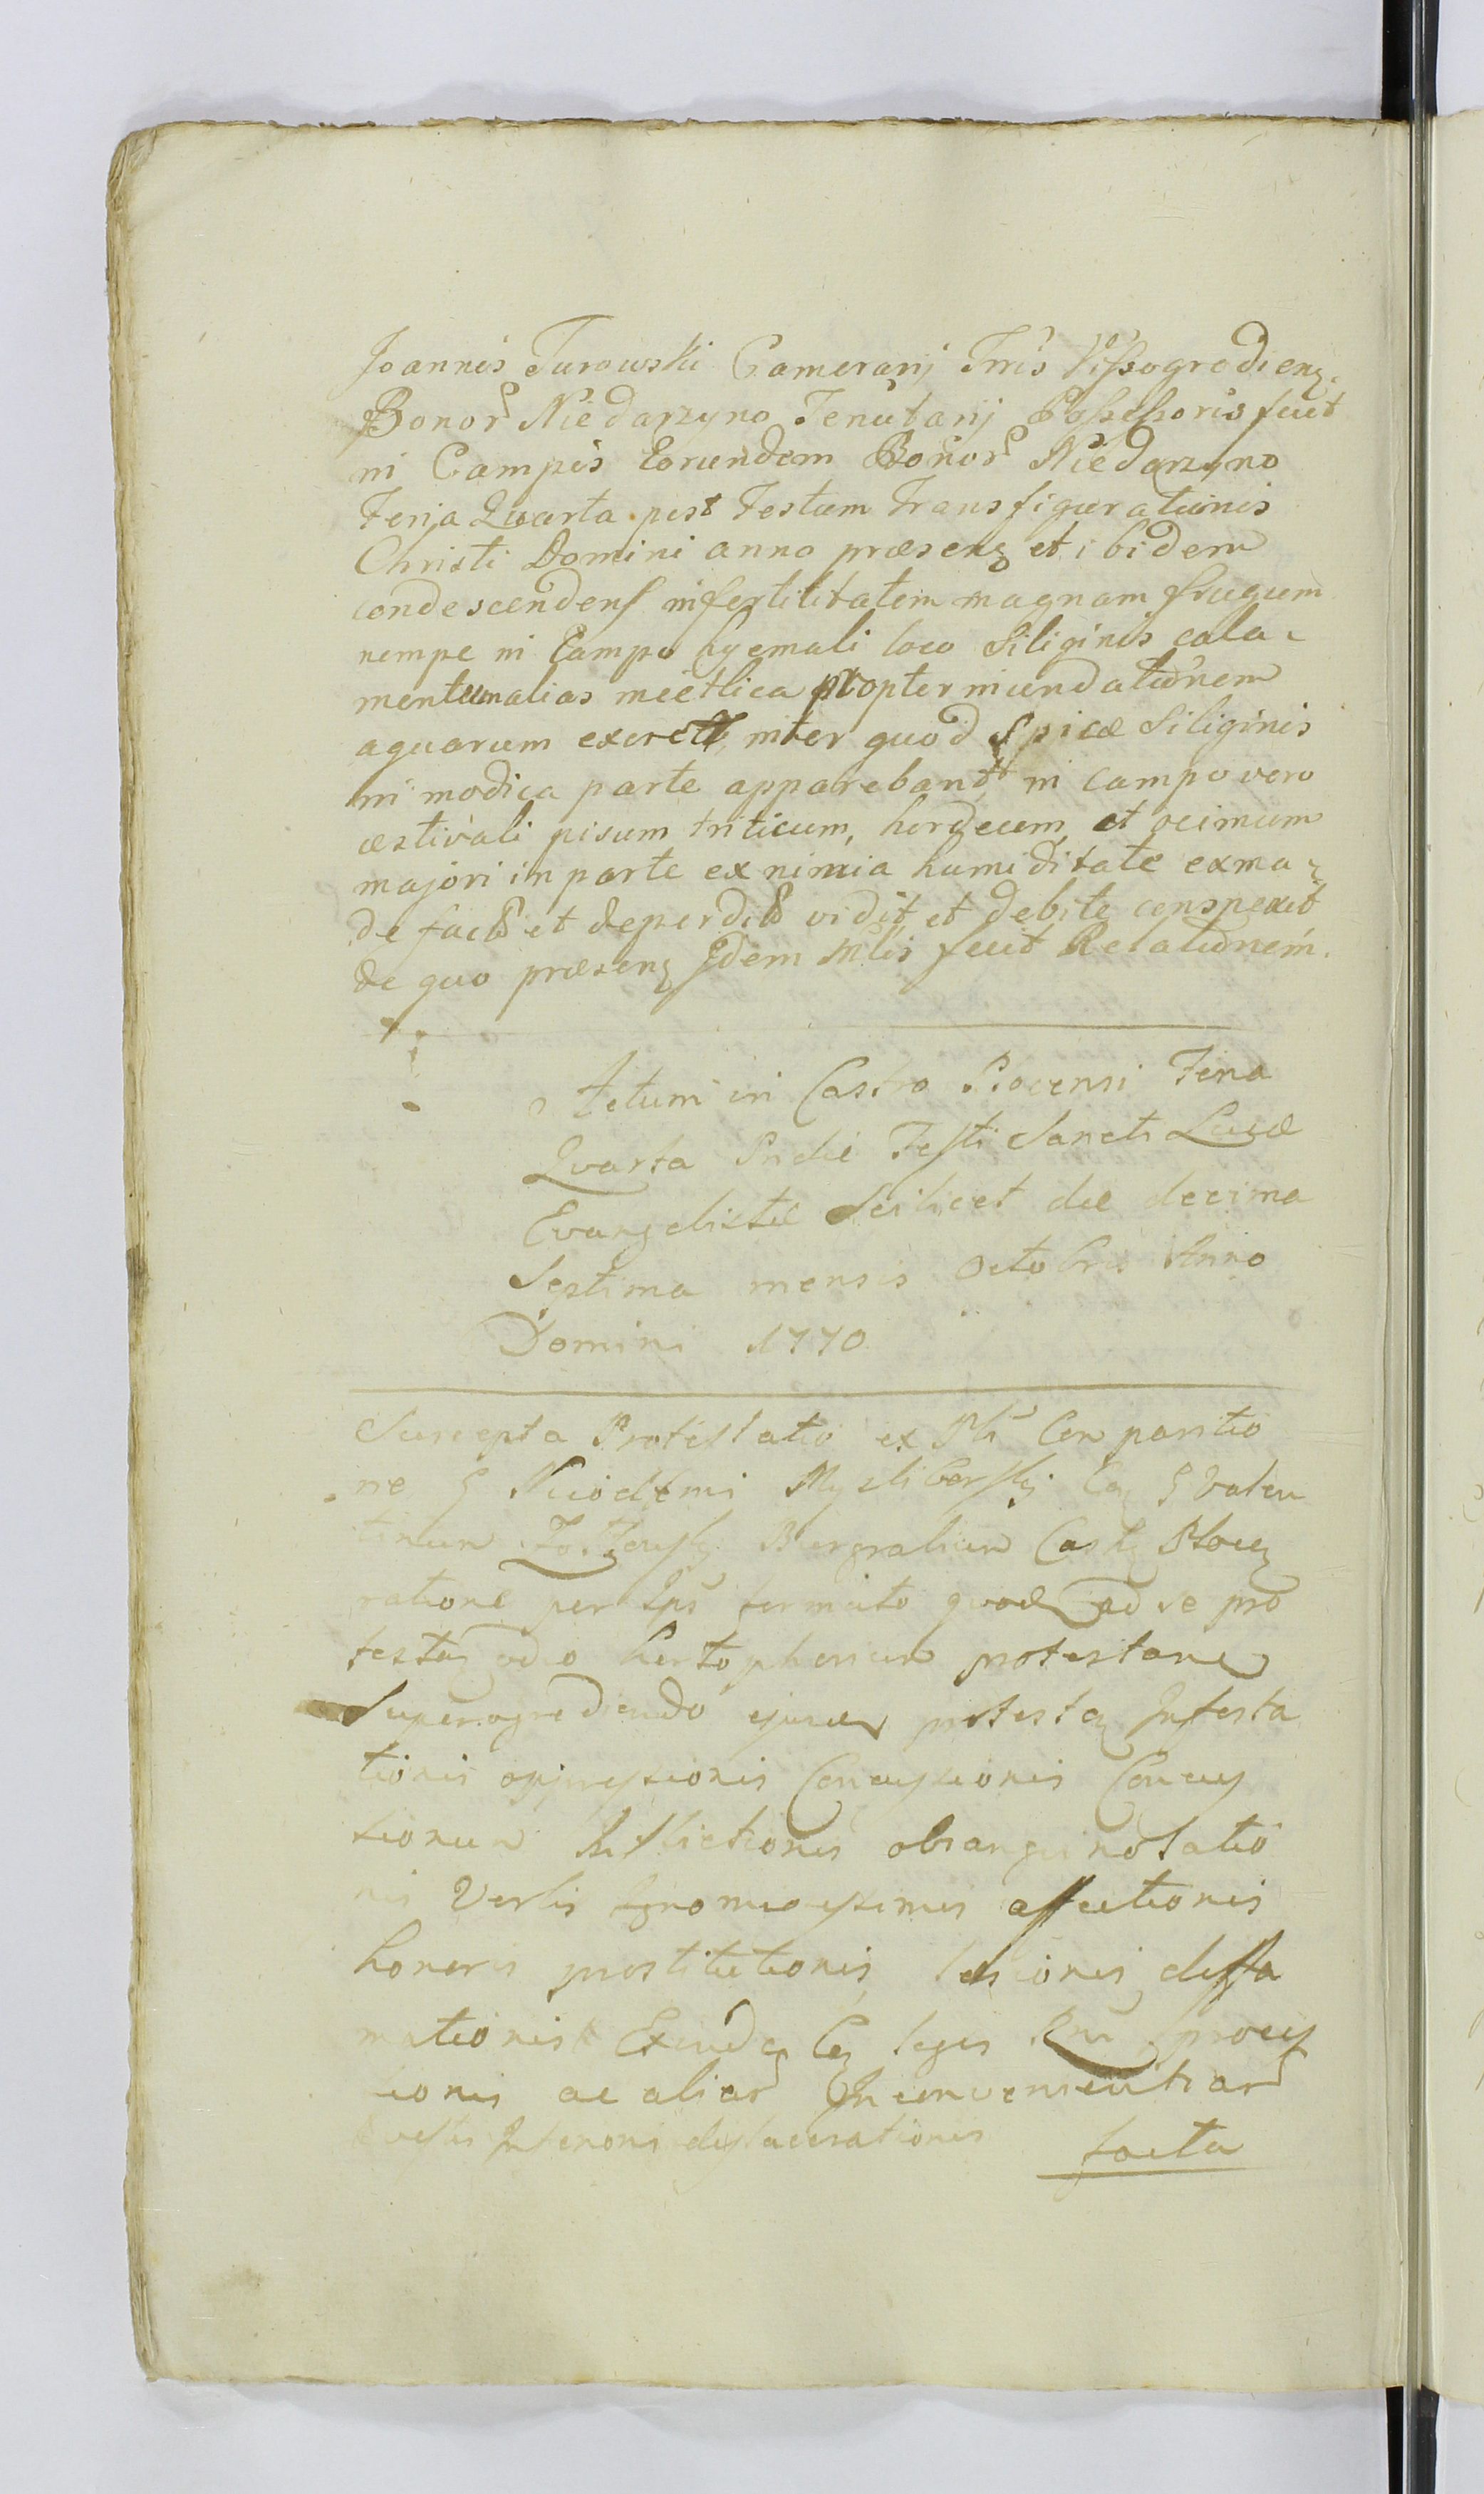 Joannis Turowski Camerarij Trris Vissogrodienz.
Bonor Niedarzyno Tenutarij Possessoris fuit
in Campis Eorundem Bonor Niedarzyno
Feria Quarta post Festum Transfigurationis
Christi Domini anno præsenz et ibidem
condescendens infertilitatem magnam frugum
nempe in Campo hyemali loco Siliginis cala-
mentum alias mietlica propter inundationem
aquarum excre inter quod Spicæ Siliginis
in modica parte apparebant in campo vero
æstivali pisum triticum, hordeum, et ocimum
majori in parte ex nimia humiditate exma-
defact et deperdit vidit et debite conspexit
de quo præsenz Idem Mlis fecit Relationem.
Actum in Castro Plocensi Feria
Quarta Pridie Festi Sancti Lucæ
Evangelistæ Scilicet die decima
Septima mensis Octobris Anno
Domini 1770
Suscepta Protestatio ex Psli Comparitio
ne G Nicodemi Mysliborskj Coz G Valen
tinum Burgrabium Castrz Plocz
ratione per Ips
protestane
Superagrediendo ejusd protestaz Infesta
tionis oppressionis Concussionis Concus
sionum Inflictionis obsanguinolatio
nis Verbis Ignominiosissimis affectionis
honoris prostitutionis læsionis diffa
mationis Exindeq Coz legis
ac aliar Inconvenientiar
Vestis Interioris dislacerationis facta